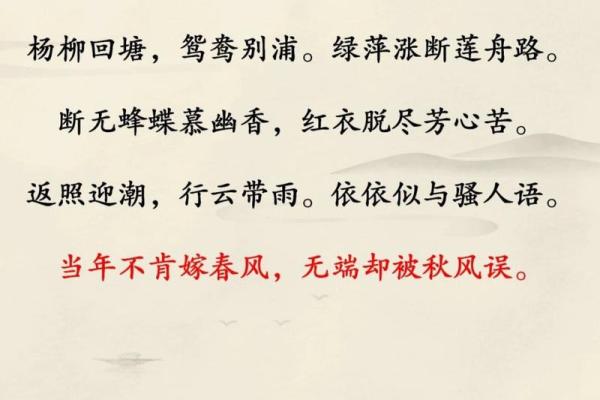 杨柳回塘，鸳鸯别浦。绿萍涨断莲舟路。
断无蜂蝶慕幽香，红衣脱尽芳心苦。
返照迎潮，行云带雨。依依似与骚人语。
当年不肯嫁春风，无端却被秋风误。